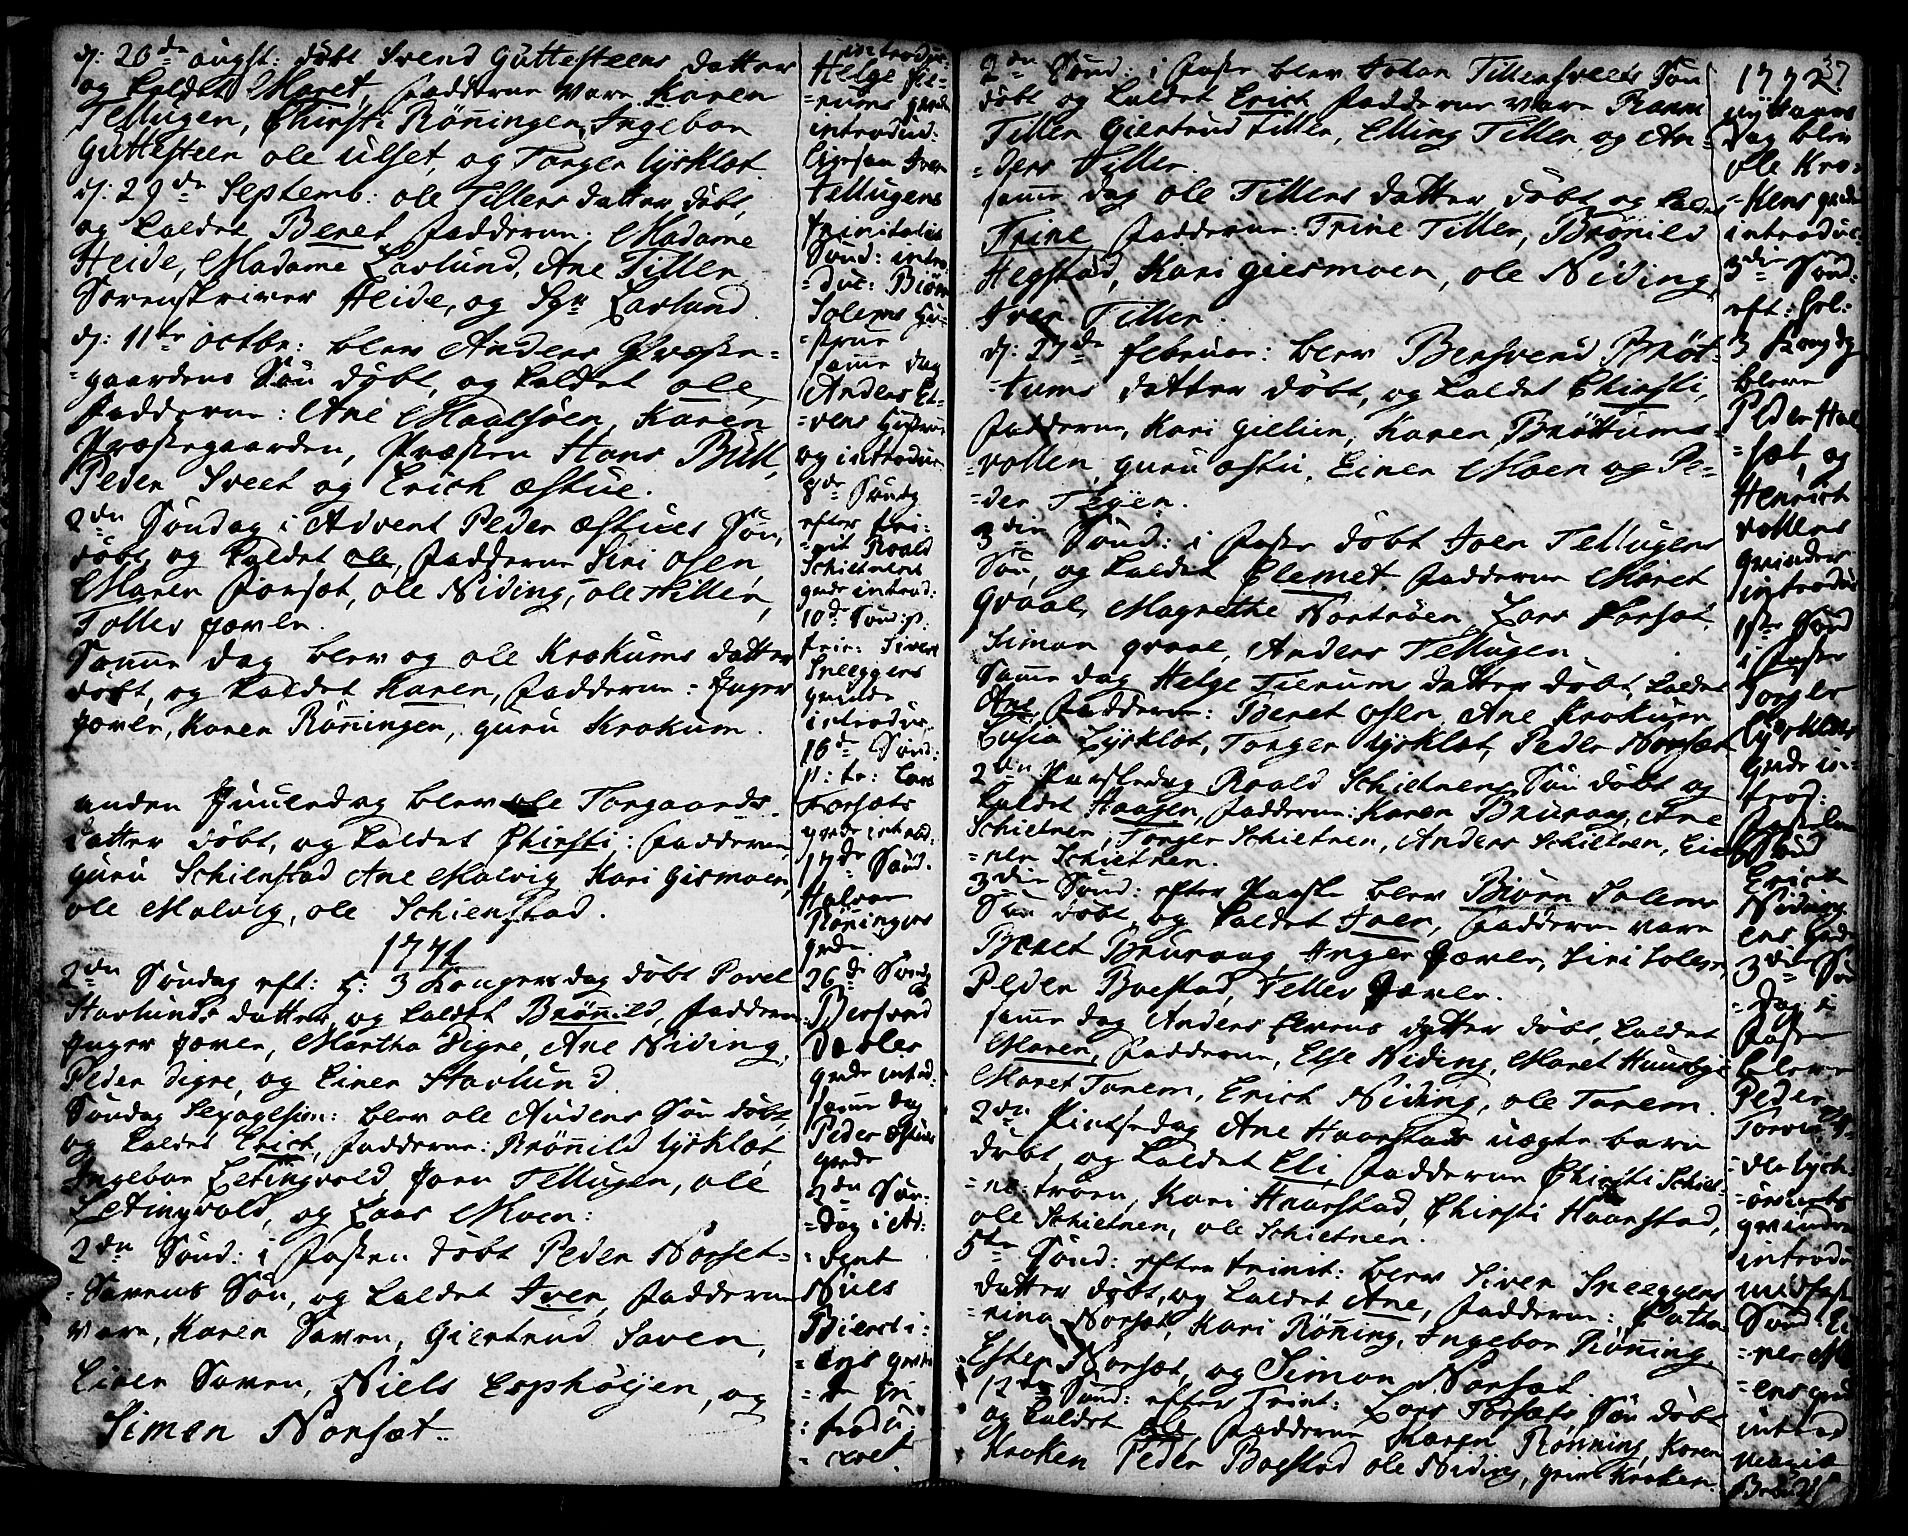 d: 26de augst: döbt Svend Guttesteens datter
og kaldet Maret, fadderne vare Karen
Tellugen, Chirsti Röningen, Ingebor
Guttesteen ole ulset, og Torger lysklæt
d: 29de Septemb: ole Tillers datter döbt,
og kaldet Beret fadderne: Madame
Heide, Madame Lavlund, Ane Tiller
Sorenskriver Heide, og Sgr Lavlund.
d: 11te octbr: blev Anders Præste-
-gaardens Sön döbt, og kaldet ole,
fadderne: Ane Maalsöen, Karen
Præstegaarden, Præsten Hans Bull,
Peder Sveet og Erich æstue.
2den Söndag i Advent Peder æstues Sön,
döbt, og kaldet ole, fadderne Siri osen,
Maren forset, ole Niding, ole Tiller,
Tollev Jæven.
Samme dag blev og ole Krokums datter
döbt, og kaldet Karen, fadderne: Inger
Jæven, Karen Röningen, guru Krokum.
anden Juuledag blev ole Torgaards
datter döbt, og kaldet Chirsti: fadderne
guru Schienstad Ane Malvig Kari Gismoen,
ole Malvig, ole Schienstad.
1771
2den Söndag eft: h: 3 Kongersdag döbt Povel
Stavlunds datter og kaldt Brönild, fadderne
Inger Jæven, Martha digre, Ane Niding,
Peder digre, og Einer Stavlund.
Söndag Sexagesim: blev ole Audens Sön döbt,
og kaldet Erich, fadderne: Brönild lysklæt
Ingebor Letingvold Jorn Tellugen, ole
Letingvold, og Lars Moen:
2den Sönd: i fasten döbt Peder Norset-
-Savens Sön, og kaldet Iver, fadderne
vare, Karen Saven, Giertrud Saven,
Einer Saven, Niels Esphöijen, og
Simen Norsæt.
introdu:
Helge Tie-
-rums qvinde
introdud:
ligesaa Iver
Tellugens
trinitatis
Sönd: intro
-duc: Biörn
Solems Hu-
-strue
samme dag
Anders El-
-vens Hustrue
og introduc
8de Söndg
efter tri-
-nit Roald
Schietnens
qvde introd:
10de Sönd: p:
trin: Siver
Sneeggens
qvinde
introduc
16de Sönd:
p: tr: Lars
Torsæts
qvde introd:
17de Sönd.
Halvor
Röningens
qvde
26de Söndg
Bersvend
Darles
qvde introd:
samme dag
Peder æstues
qvde
2den Sön-
-dag i Ad-
-vent
Niels
Biersti-
-ens qvin
-de in
-trodu
-ceret
2den Sönd: i faste blev Johan Tillersveeds Sön
döbt og kaldet Erich fadderne vare Ranni
Tiller Giertrud Tiller, Elling Tiller og An-
-ders Tiller.
samme dag ole Tillers datter döbt og kaldet
Trine fadderne: Trine Tiller, Brönild
Hegstad, Kari giesmoen, ole Niding
Iver Tiller.
d: 27de februar: blev Bersvend Bröt-
-tums datter döbt, og kaldet Chirsti,
fadderne, Kari Gielien, Karen Bröttums-
-vollen, guru æstu, Einer Moen og Pe-
-der Teijen.
3die Sönd: i faste döbt Iver Tellugens
Sön, og kaldet Clemet fadderne Maret
Graal, Magrethe Nortröen Lars Torsæt,
Simon graal, Anders Tellugen.
Samme dag Helge Tierums datter döbt, kaldet
Ane fadderne: Beret osen Ane Krokum
Lusia Lysklæt, Torger lysklæt, Peder Norsæt
2den Paaskedag Roald Schietnens Sön döbt og
kaldet Haagen, fadderne: Karen Bruraag, Ane
Schietnen, Torger Schietnen, Anders Schietnen, Ei-
-ner Schietnen.
3die Sönd: efter Paaske blev Biörn Solems
Sön döbt, og kaldet Iver, fadderne vare
Beret Bruraag, Inger Jæven, Siri Solem,
Peder Boestad, Tollev Jæven.
samme dag Anders Elvens datter döbt, kaldet
Maren, fadderne, Else Niding, Maret Huusbye
Maret Tanem, Erich Niding, ole Tanem.
2den Pintsedag Ane Haarstads uægte barn
döbt, og kaldet Eli, fadderne Chirsti Schiet-
-ne-tröen, Kari Haarstad, Chirsti Haarstad,
ole Schietnen, ole Schietnen.
5te Sönd: efter trinit: blev Siver Sneeggens
datter döbt, og kaldet Ane, fadderne: Catha-
-rina Norsæt, Kari Röning, Ingebor Röning,
Ester Norsæt, og Simon Norsæt.
12te Sönd: efter Trint: Lars Torsæts Sön döbt
og kaldet ole, fadderne Karen Rönning, Karen
Kroken Peder Boestad ole Niding, Kroken.
37
1772
nyttaars
dag blev
ole Kro-
-kens qvinde
introduc:
3die Sönd:
eft: hel:
3 Kongdg
bleve
Peder Hal
-sæt, og
Henrich
vollens
qvinder
introdu
1ste Sönd
i faste
Torger
Lysklets
qvde in-
trod:
fastelau
Sönd
Erich
Niding-
ens qvde
3die Sön
-dag i
faste
bleve
Peder
qvinder
introdu
midfaste
Sönd Ei
-ner Mo
-ens qvi
introd
Mariæ